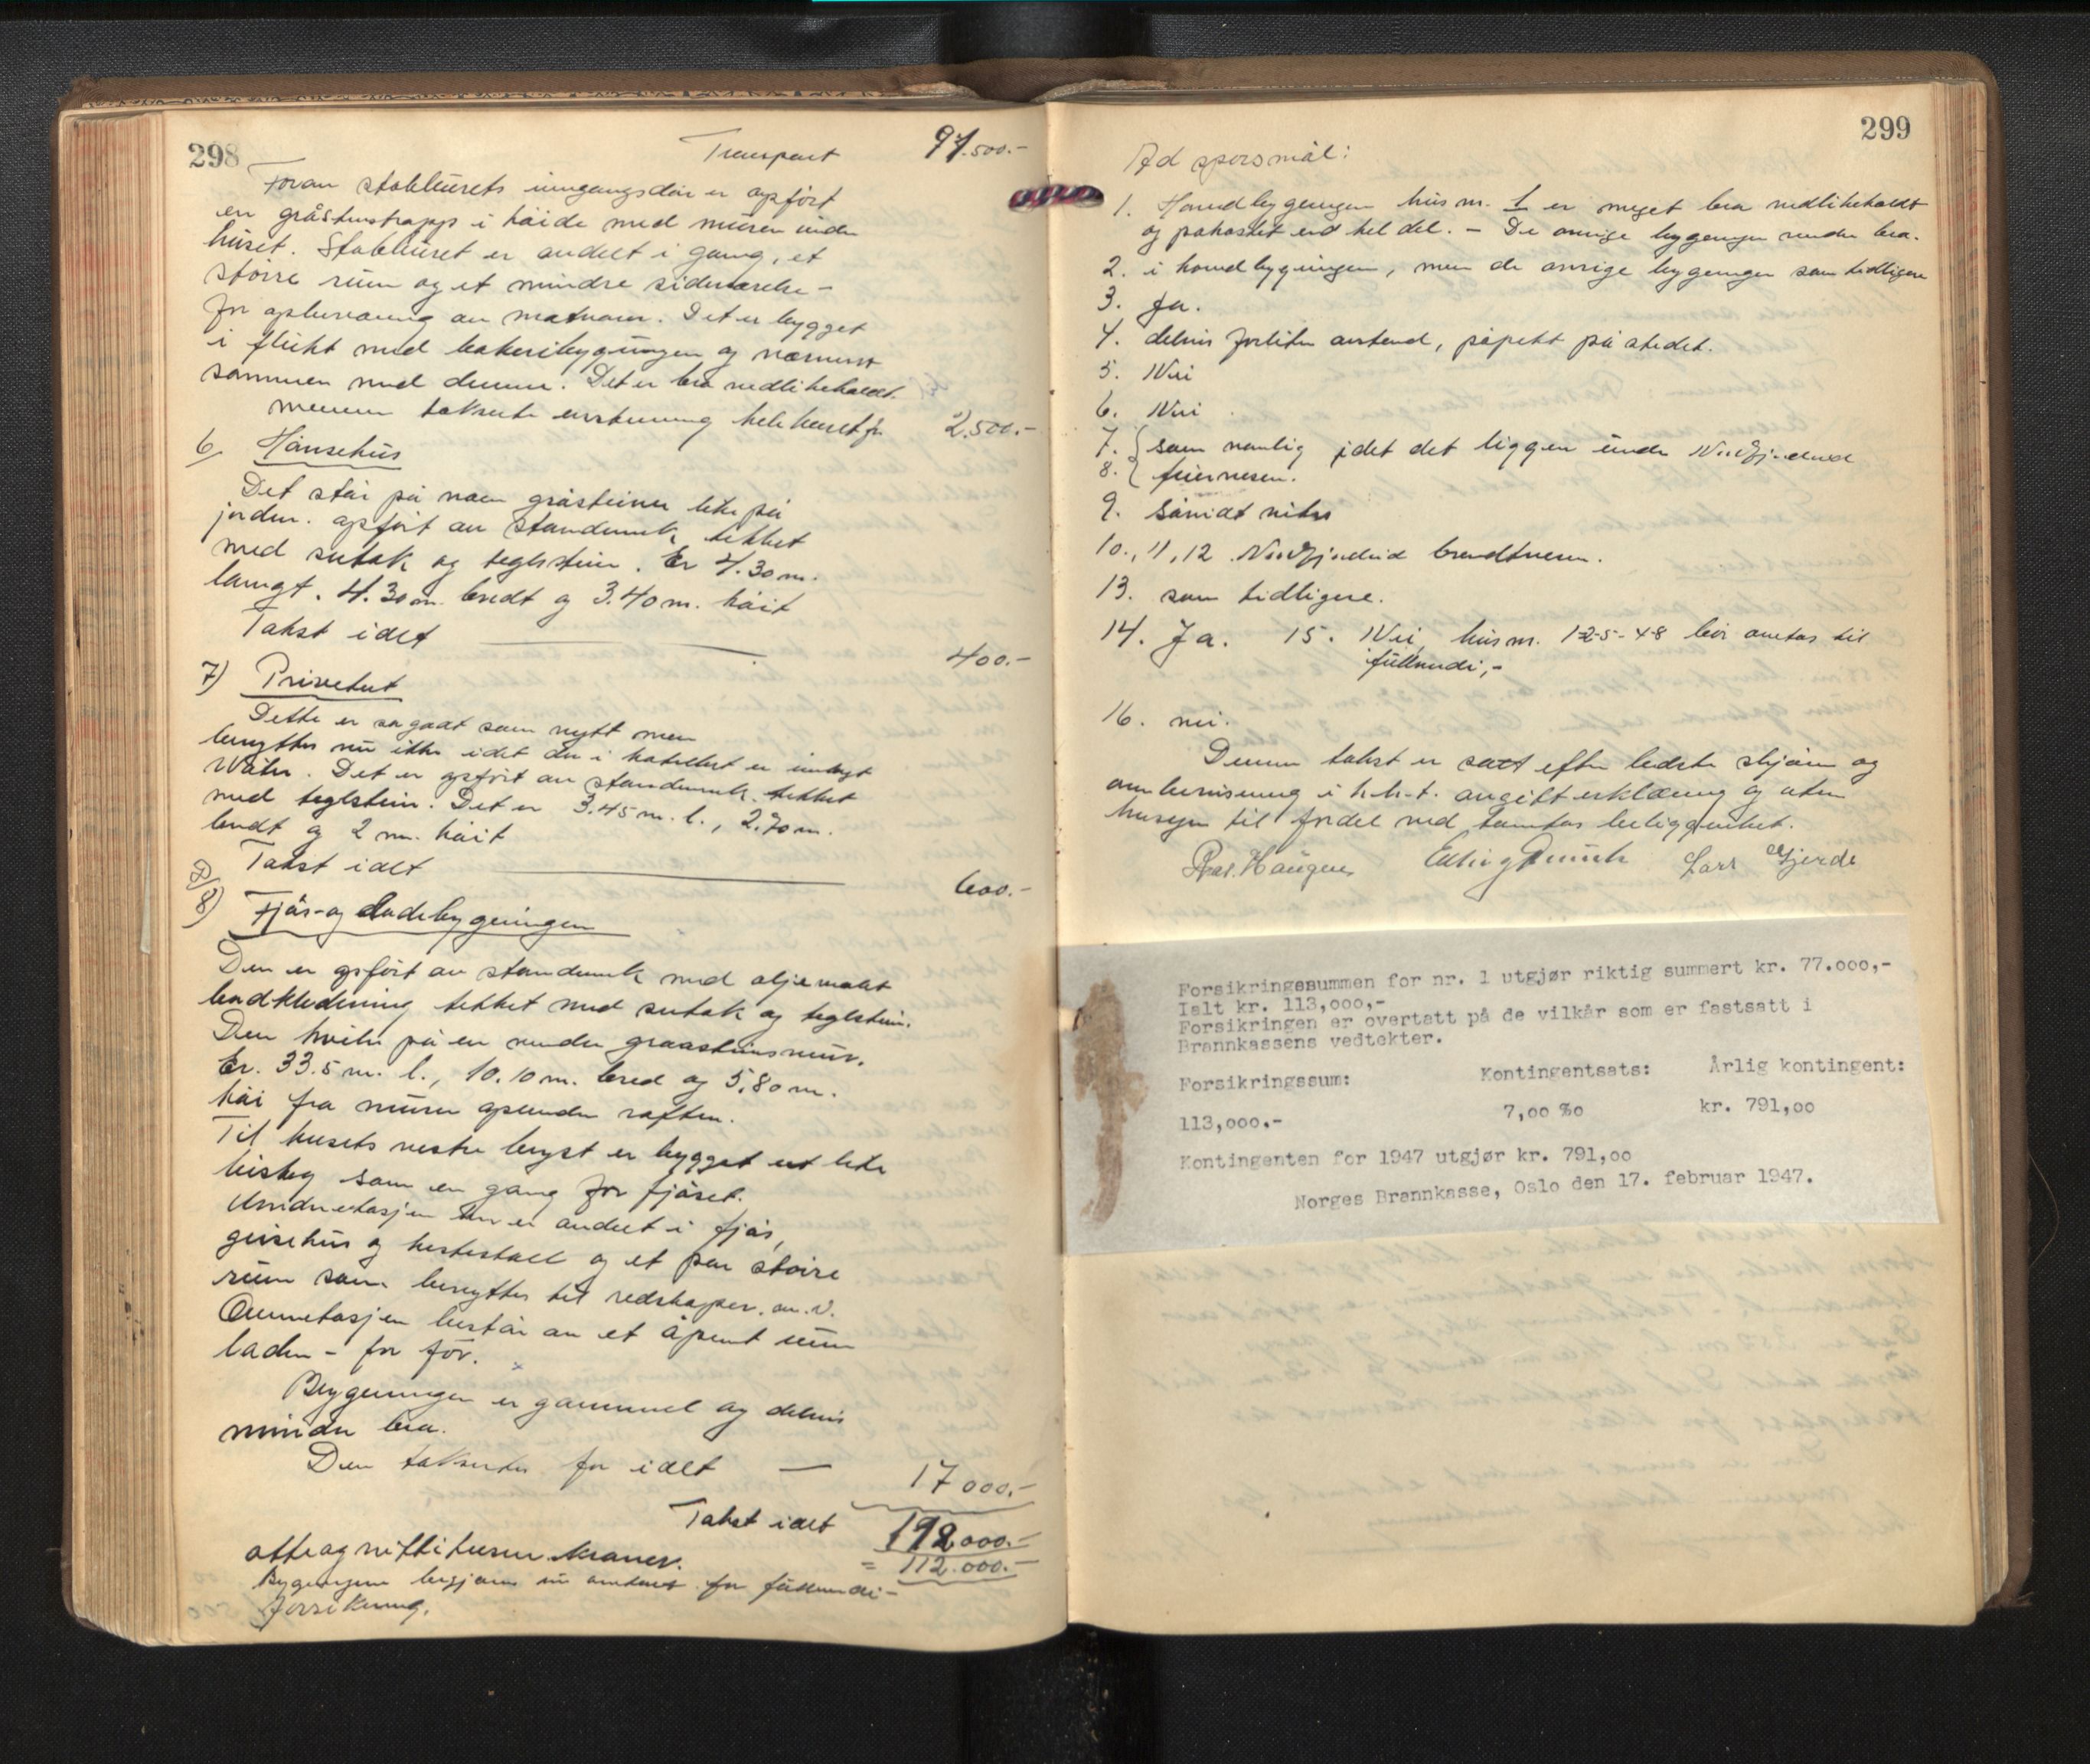 298
Transport 91.500.-
Foran stabburets inngangsdør er opført
en gråstenstrapp i høide med muren under
huset. Stabburet er andelt i gang, et
større rum og et mindre sideværelse -
for opbevaring av matvarer. Det er bygget
i flukt med bakeribygningen og nærmest
sammen med denne. Det er bra vedlikeholdt.
Menn taksert innstenning hele huset for 2.500.-
6/ Hønsehus
Det står på noen gråsteiner like på
jorden. opført av standerverk, tekket
med sutak og teglstein. Er 4.30 m.
langt. 4.30 m. bredt og 3.40 m. høit
Takst ialt 400.-
7) Privetet
Dette er sågodt som nytt men
benyttes nu ikke idet der i hotellet er innlagt
Water. Det er opført av standerverk. tekket
med teglstein. Det er 3.45 m. l., 2.70 m.
bredt og 2 m. høit
Takst ialt 600.-
8) Fjøs- og Ladebygningen
Den er opført av standerverk med oljemalt
bordkledning tekket med sutak og teglstein.
Den hviler på en under graastensmur.
Er. 33.5 m. l., 10.10 m. bred og 5.80 m.
høi fra muren optil under raften.
Til husets vestre bryst er bygget et lite
bislag som en gang for fjøset.
Underetasjen er andelt i fjøs,
geisehus og hestestall og et par større
rum som benyttes til redskaper. m. v.
Ovenetasjen består av et åpent rum
laden - for fôr.
Bygningen er gammel og delvis
mindre bra.
Den takseres for ialt 17 000.-
Takst ialt 112.000.-
= 112.000.-
otte og nitti tusen kroner.
Bygningene begjæres nu antatt for fullverdi-
forsikring.
299
Ad spørsmål:
1. Hovedbygningen hus nr. 1 er meget bra vedlikeholdt
og påkostet en hel del. - De øvrige bygninger under bra.
2. i hovedbygningen, men de øvrige bygninger som tidligere
3. Ja.
4. delvis forliten avstand, påpekt på stedet.
5. Nei
6. Nei
7. { som vanlig idet det ligger under Nordfjordeid
8. { feiervesen.
9. Såvidt vites
10., 11, 12 Nordfjordeid brandtvesen.
13. som tidligere.
14. Ja. 15. Nei, hus nr. 1-2-5-4-8 bør antas til
fullverdi,-
16. nei.
Denne takst er satt efter bedste skjønn og
overbevisning i h.h.t. avgitt erklæring og uten
hensyn til fordel ved tomtas beliggenhet.
Ras. Haugen Lars Gjerde
Forsikringssummen for nr. 1 utgjør riktig summert kr. 77.000,-
Ialt kr. 113,000,-
Forsikringen er overtatt på de vilkår som er fastsatt i
Brannkassens vedtekter.
Forsikringssum: Kontingentsats: Årlig kontingent:
113,000.- 7,00 %o kr. 791,00
Kontingenten for 1947 utgjør kr. 791,00
Norges Brannkasse, Oslo den 17. februar 1947.